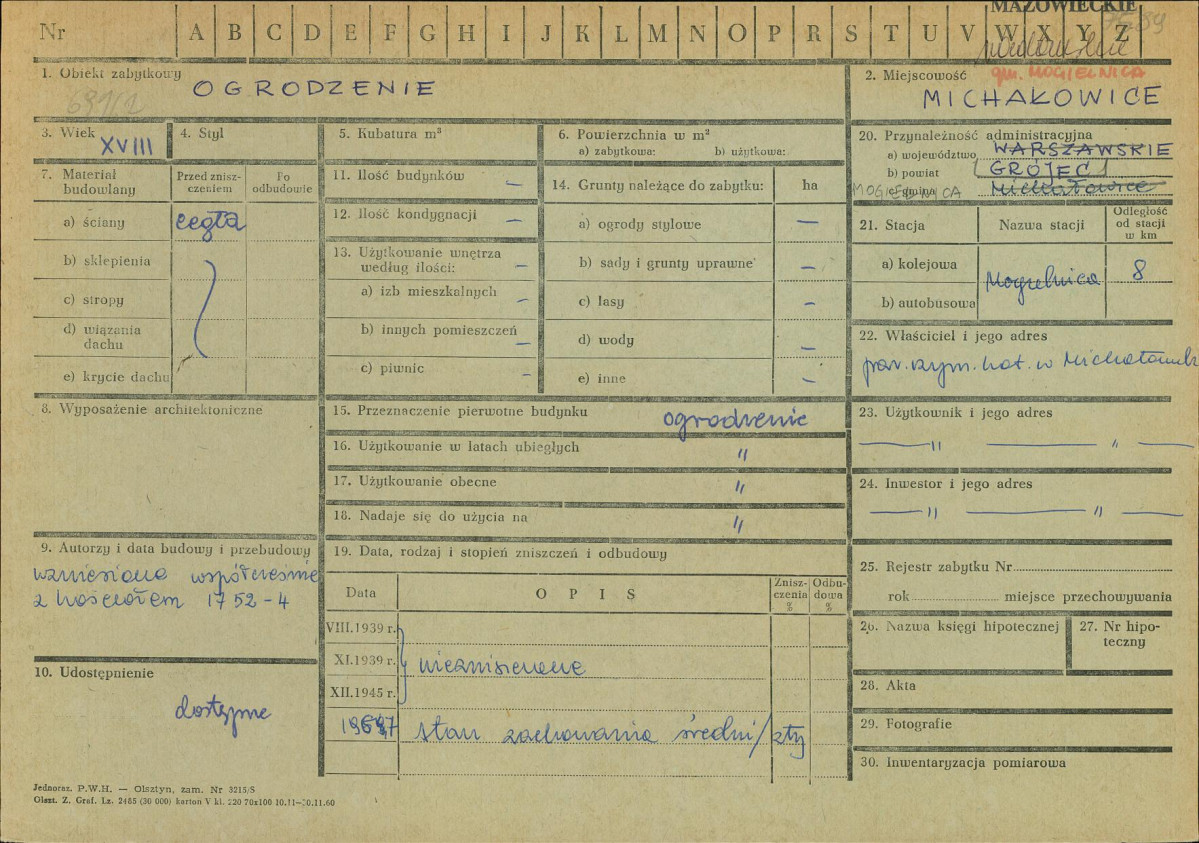 MAZOWIECKIE
Nr A B C D E F G H I J K L M N O P R S T U V W X Y Z
1. Obiekt zabytkowy
OGRODZENIE
691/2
2. Miejscowość
gm. MOGIELNICA
MICHAŁOWICE
3. Wiek
XVIII
4. Styl
5. Kubatura m³
6. Powierzchnia w m²
a) zabytkowa: b) użytkowa:
20. Przynależność administracyjna
a) województwo WARSZAWSKIE
b) powiat GRÓJEC
MOGIELNICA c) gmina Michałowice
7. Materiał budowlany
Przed zniszczeniem
Po odbudowie
a) ściany cegła
b) sklepienia
c) stropy
d) wiązania dachu
e) krycie dachu
11. Ilość budynków –
12. Ilość kondygnacji –
13. Użytkowanie wnętrza według ilości: –
a) izb mieszkalnych –
b) innych pomieszczeń –
c) piwnic –
14. Grunty należące do zabytku: ha
a) ogrody stylowe –
b) sady i grunty uprawne –
c) lasy –
d) wody –
e) inne –
21. Stacja
Nazwa stacji
Odległość od stacji w km
a) kolejowa
b) autobusowa
Mogielnica 8
22. Właściciel i jego adres
par. rzym. kat. w Michałowicach
8. Wyposażenie architektoniczne
15. Przeznaczenie pierwotne budynku ogrodzenie
16. Użytkowanie w latach ubiegłych "
17. Użytkowanie obecne "
18. Nadaje się do użycia na "
23. Użytkownik i jego adres
— " — " —
24. Inwestor i jego adres
— " — " —
9. Autorzy i data budowy i przebudowy
wzniesione współcześnie
z kościołem 1752-4
19. Data, rodzaj i stopień zniszczeń i odbudowy
Data
OPIS
Zniszczenia %
Odbudowa %
VIII.1939 r.
XI.1939 r. niezniszczone
XII.1945 r.
stan zachowania średni/zły
10. Udostępnienie
dostępne
25. Rejestr zabytku Nr
rok miejsce przechowywania
26. Nazwa księgi hipotecznej
27. Nr hipoteczny
28. Akta
29. Fotografie
30. Inwentaryzacja pomiarowa
Jednoraz. P.W.H. — Olsztyn, zam. Nr 3215/S
Olszt. Z. Graf. Lz. 2485 (30 000) karton V kl. 220 70x100 10.11—30.11.60